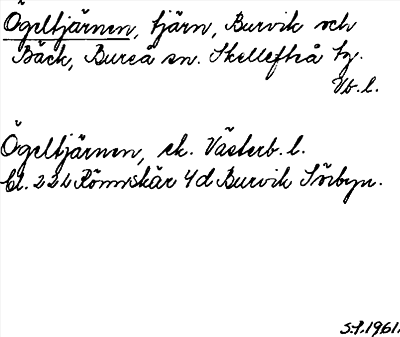 Ögeltjärnen, tjärn, Burvik och
Bäck, Bureå sn. Skellefteå tg.
Vb. l.
Ögeltjärnen, ek. Västerb. l.
bl. 22 L Rönnskär 4d Burvik Sörbyn.
S.P. 1961.